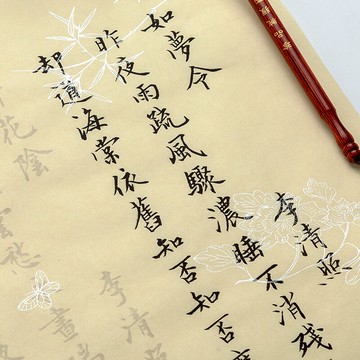 如夢令 李清照
昨夜雨疏風驟濃睡不消殘
却道海棠依舊知否知否
花陰 李清
雲愁
晝